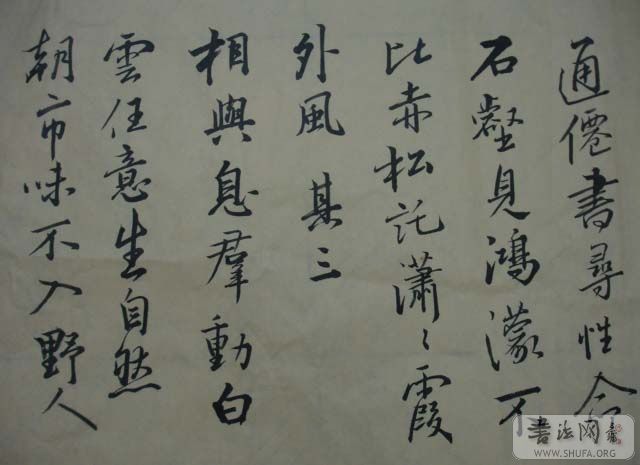 通僊書尋性命
石壑見鴻濛不
比赤松託瀟〻霞
外風 其三
相與息羣動白
雲任意生自然
朝市味不入野人
书法网
WWW.SHUFA.ORG